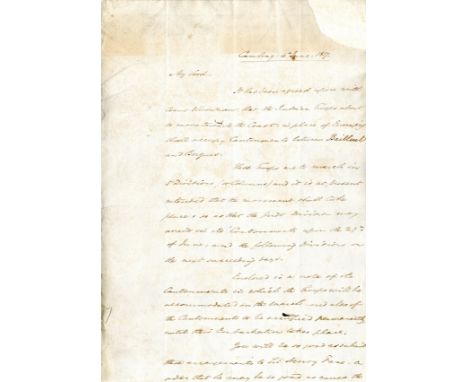 Cambray 4th June 1817.
My Lord.
It has been agreed upon with
that the Troops about
to move towards the Coast in place of
shall occupy Cantonments between Bailleul
and Bergues.
These Troops are to march in
5 Divisions, (or Columns) and it is at present
intended that the movement shall take
place so that the first Division may
arrive in its Cantonments upon the
of June, and the following Divisions on
the next succeeding days.
Enclosed is a note of the
Cantonments in which the Troops will be
accommodated on the march and also of
the Cantonments to be occupied permanently
until their Embarkation takes place.
You will be so good as submit
these arrangements to Sir Henry Fane, in
order that he may be so good as cause the